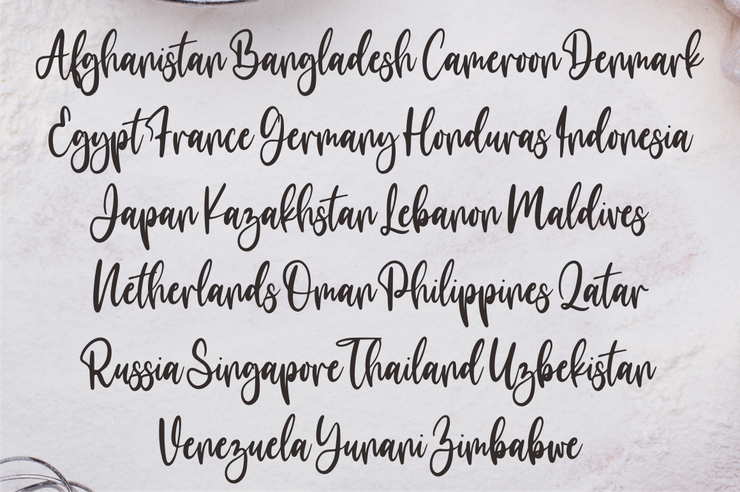 Afghanistan Bangladesh Cameroon Denmark
Egypt France Germany Honduras Indonesia
Japan Kazakhstan Lebanon Maldives
Netherlands Oman Philippines Qatar
Russia Singapore Thailand Uzbekistan
Venezuela Yunani Zimbabwe